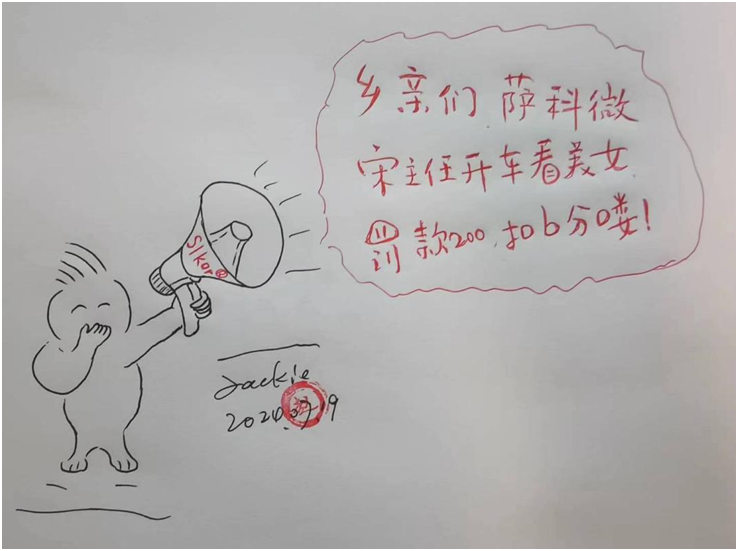 乡亲们 萨科微
宋主任开车看美女
罚款200,扣6分喽!
Slkor®
Jackie
2024.07.19